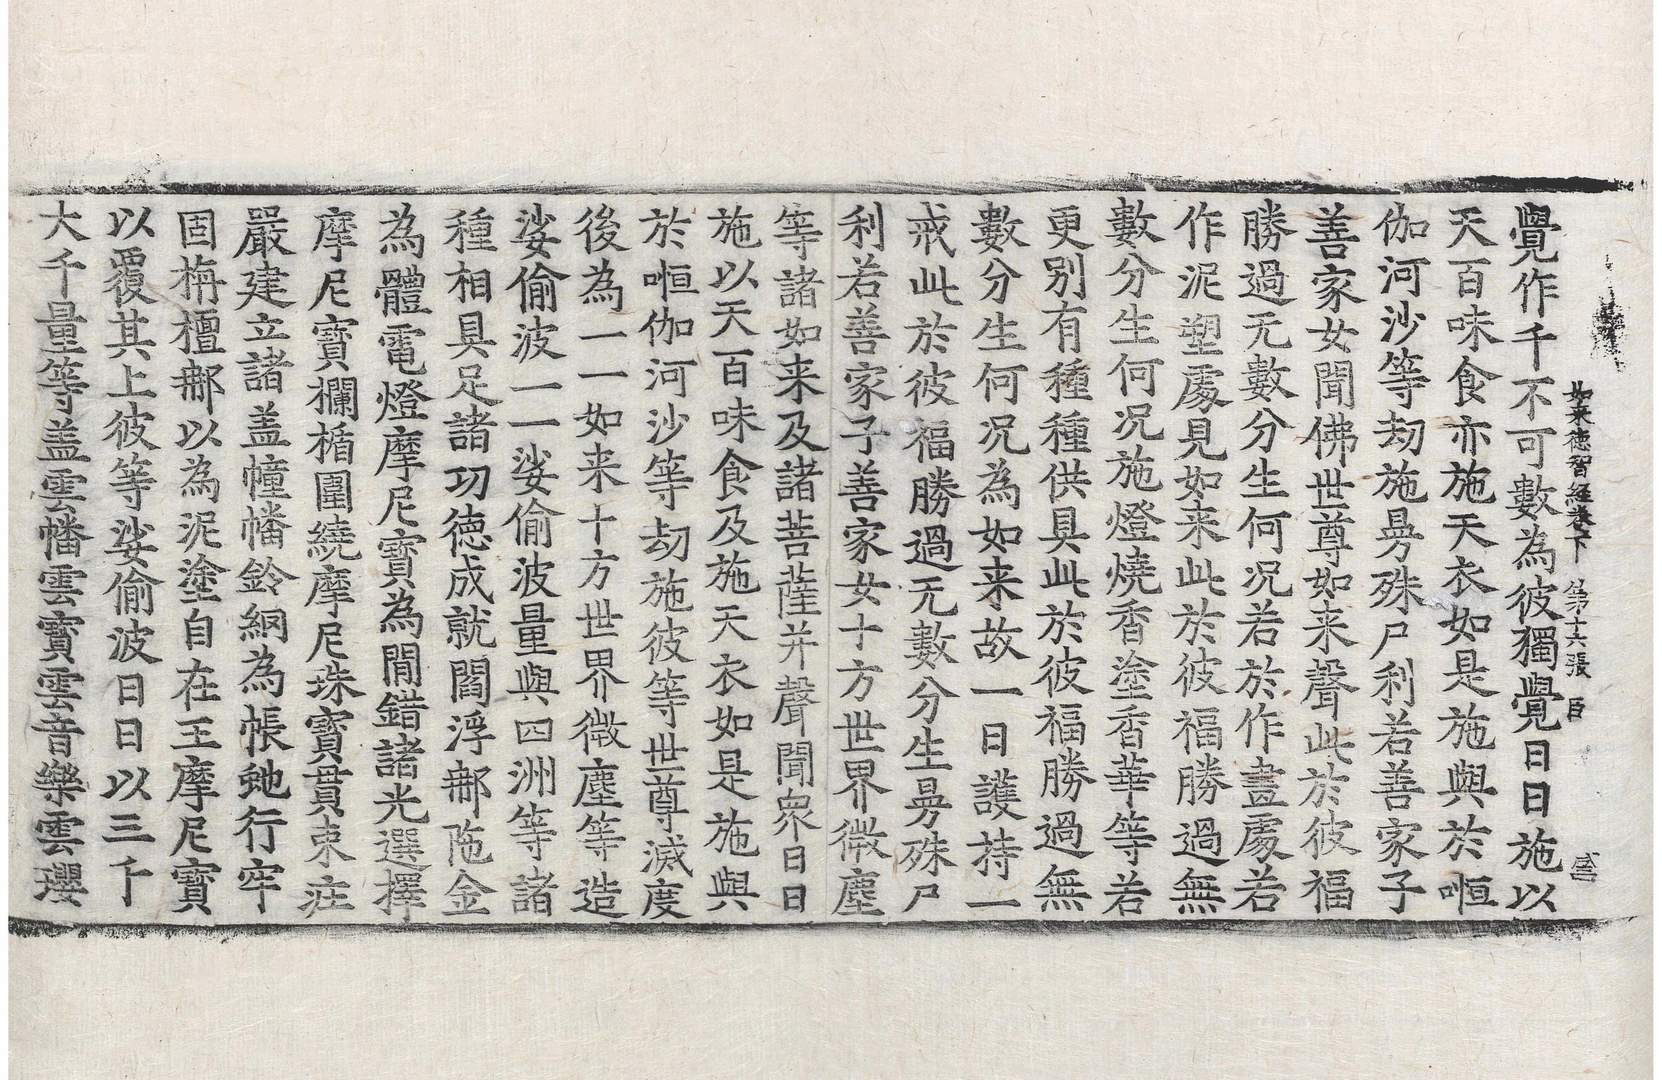 如来德智経卷下　第十六張　臣
覺作千不可數為彼獨覺日日施以
天百味食亦施天衣如是施與於恒
伽河沙等劫施㬅殊尸利若善家子
善家女聞佛世尊如来聲此於彼福
勝過无數分生何况若於作畫處若
作泥塑處見如来此於彼福勝過無
數分生何况施燈燒香塗香華等若
更別有種種供具此於彼福勝過無
數分生何况為如来故一日護持一
戒此於彼福勝過无數分生㬅殊尸
利若善家子善家女十方世界微塵
等諸如来及諸菩薩并聲聞衆日日
施以天百味食及施天衣如是施與
於恒伽河沙等劫施彼等世尊滅度
後為一一如来十方世界微塵等造
娑偷波一一娑偷波量與四洲等諸
種相具足諸功德成就閻浮那陁金
為體電燈摩尼寶為間錯諸光選擇
摩尼寶欄楯圍繞摩尼珠寶貫束莊
嚴建立諸盖幢幡鈴網為帳虵行牢
固栴檀那以為泥塗自在王摩尼寶
以覆其上彼等娑偷波日日以三千
大千量等盖雲幡雲寶雲音樂雲瓔